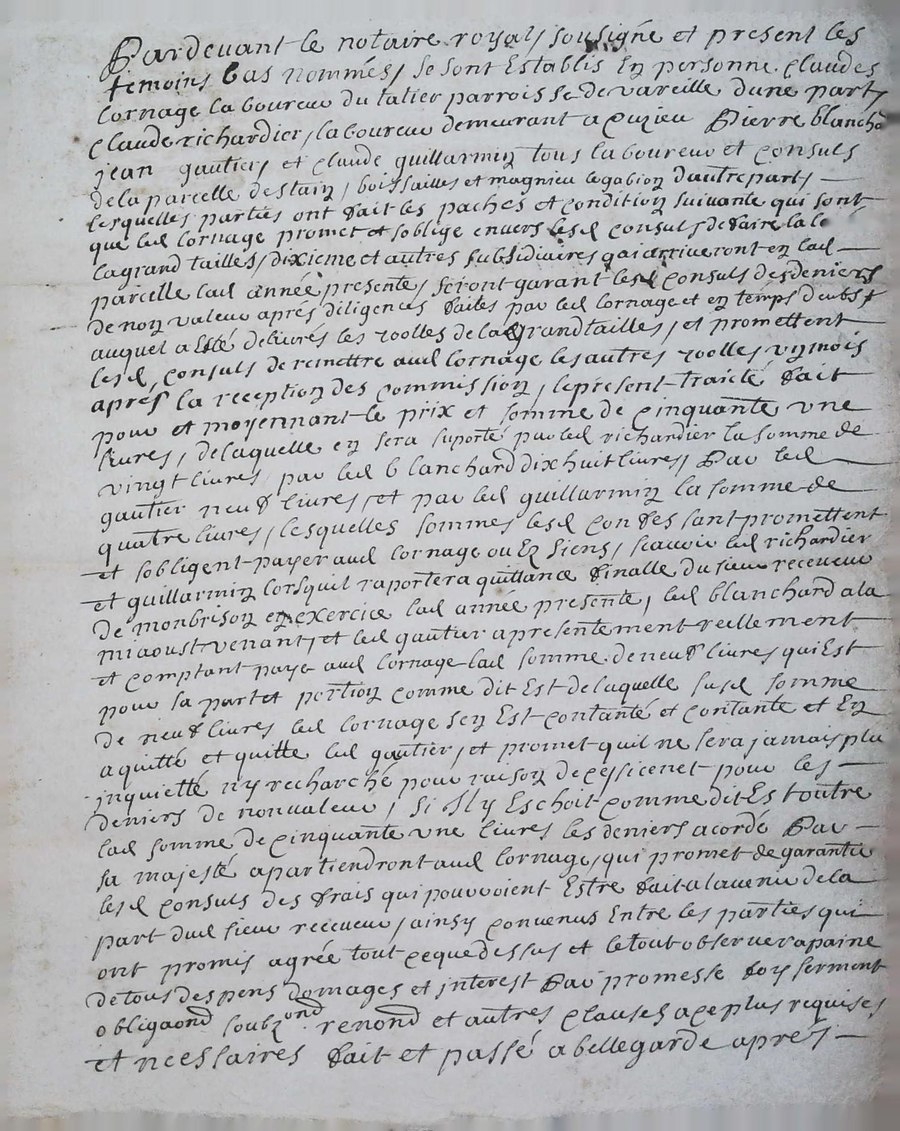 Pardevant le notaire royal, sousigné et present les
temoins bas nommés, se sont Establis En personne. Claudes
Cornage laboureur du talier parroisse de vareille dune part,
Claude richardier, laboureur demeurant a Cuzieu Pierre blanchd
jean gautier, et Claude guillarmin tous laboureur et Consuls
de la parcelle destain, boissailles et magnieu le gabion dautrepart,
lesquelles parties ont fait les paches et Condition suivante qui sont
que led Cornage promet et soblige envers lesd Consuls de faire la le
la grand tailles, dixieme et autres subsidiaires qui arriveront en lad
parcelle lad année presente, seront garant lesd Consuls des deniers
de non valeur aprés diligences faites par led Cornage et en temps dubs
auquel a Esté delivrés les roolles de lad grand tailles, et promettent
lesd, Consuls de remettre aud Cornage les autres roolles un mois
apres la reception des Commission, le present traicté fait
pour et moyennant le prix et somme de Cinquante une
livres, de laquelle en sera suporté par led richardier la somme de
vingt livres, par led blanchard dix huit livres, Par led
gautier neuf livres, et par led guillarmin la somme de
quatre livres, lesquelles sommes lesd Con fes sant promettent
et sobligent payer aud Cornage ou Es siens, scavoir led richardier
et guillarmin lorsquil raportera quittance finalle du sieur receveur
de monbrison en exercice lad année presente, led blanchard a la
miaoust venant, et led gautier a presentement reellement
et Comptant payé aud Cornage lad somme de neuf livres qui Est
pour sa part et portion Comme dit Est de laquelle susd somme
de neuf livres led Cornage sen Est Contanté et Contante et En
a quitté et quitte led gautier, et promet quil ne sera jamais plu
jnquietté ny recharché pour raison de Ce, sicenet pour les
deniers de nonvaleur, si Il y Eschoit Comme dit Est outre
lad somme de Cinquante une livres les deniers acordé Par
sa majesté apartiendront aud Cornage, qui promet de garantir
lesd Consuls des frais qui pouvoient Estre fait a lavenir de la
part dud sieur receveur, ainsy Convenus Entre les parties qui
ont promis agrée tout Ceque dessus et le tout observer a paine
de tous despens domages et jnterest Par promesse foy serment
obligaond soubzond renond et autres Clauses a Ce plus requises
et necessaires fait et passé a bellegarde aprés